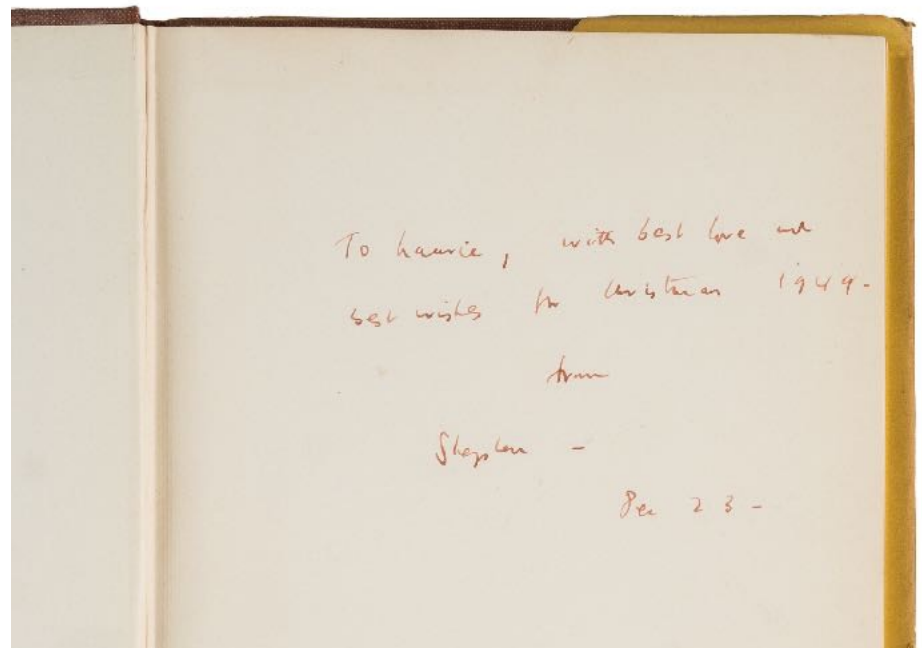 To Laurie, with best love and
best wishes for Christmas 1949-
from
Stephen -
Dec 23 -